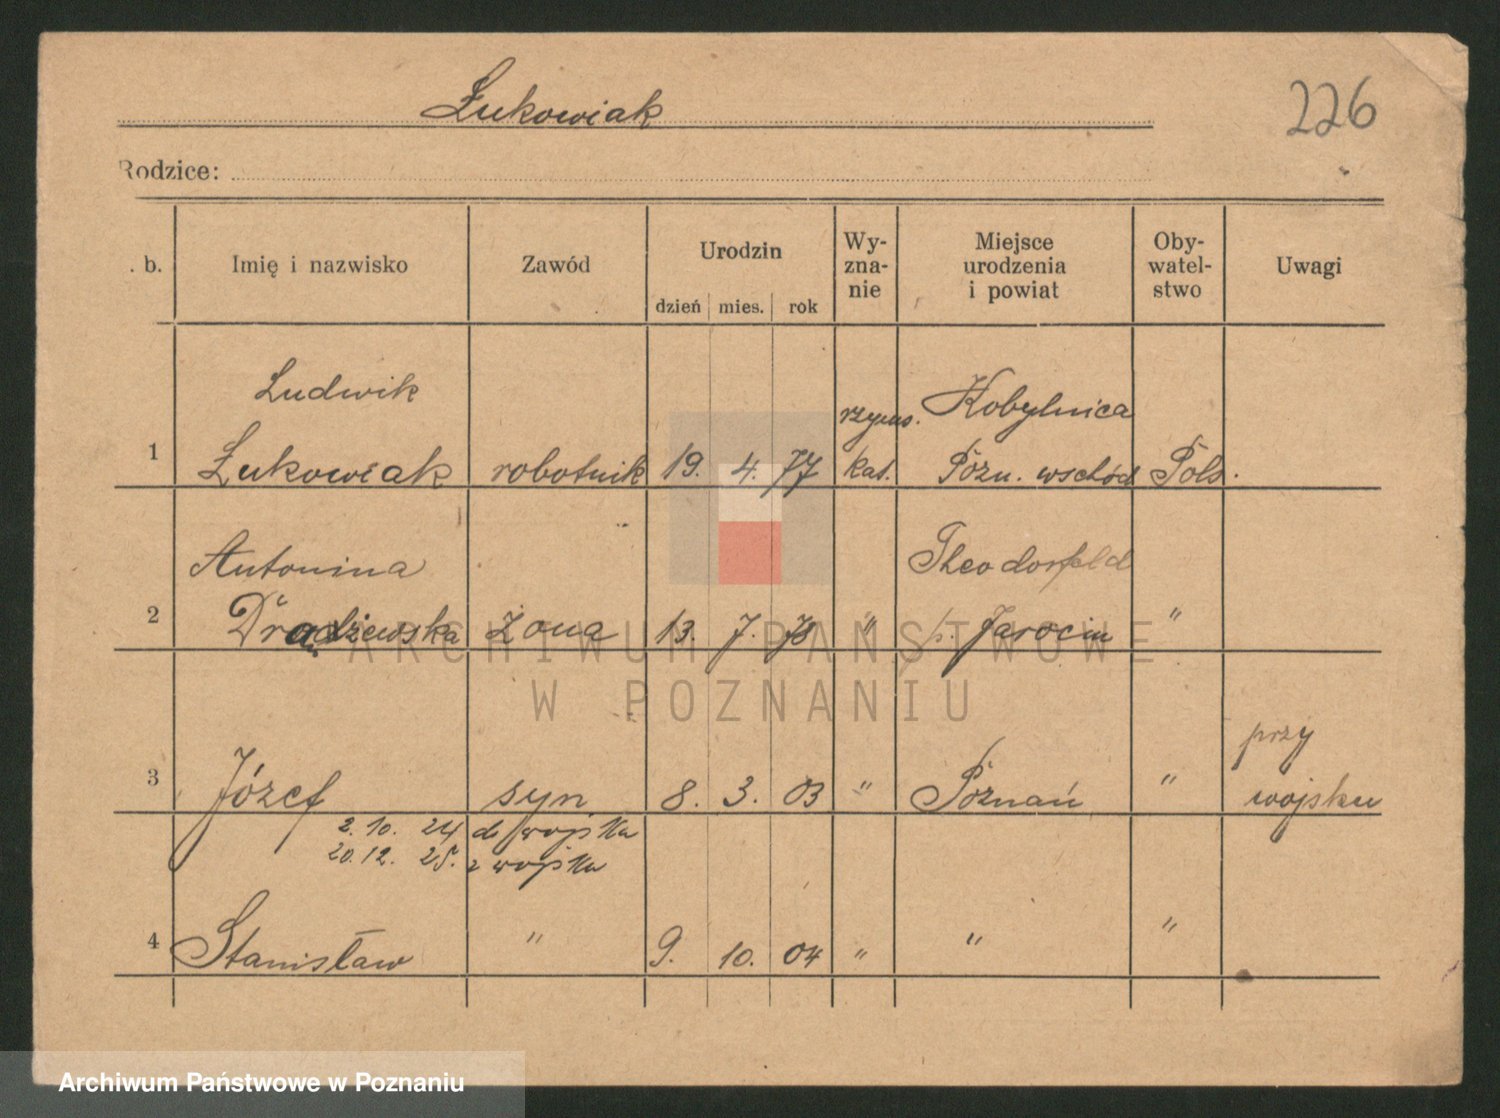 Łukowiak
226
Rodzice:
. b. Imię i nazwisko Zawód Urodzin Wy-zna-nie Miejsce urodzenia i powiat Oby-watel-stwo Uwagi
dzień mies. rok
Ludwik rzyms. Kobylnica
1 Łukowiak robotnik 19. 4. 77 kat. Pozn. wschód Pols.
Antonina Theodorfeld
2 żona 13. 7. 78 " p. Jarocin "
ARCHIWUM PAŃSTWOWE
W POZNANIU
przy
3 Józef syn 8. 3. 03 " Poznań " wojsku
2. 10. 24 do wojska
20. 12. 25. z wojska
4 Stanisław " 9. 10. 04 " " "
Archiwum Państwowe w Poznaniu